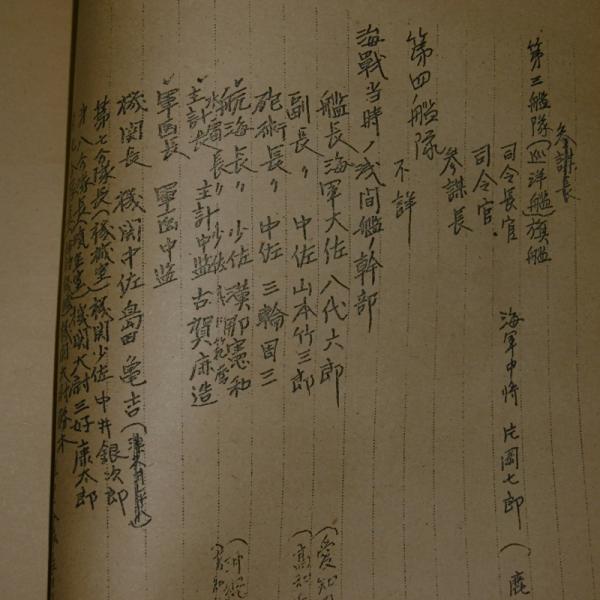 参謀長
第三艦隊（巡洋艦）旗艦
司令長官 海軍中将 片岡七郎（鹿
司令官
参謀長
第四艦隊
不詳
海戦当時ノ浅間艦ノ幹部
艦長 海軍大佐 八代六郎（愛知
副長 〃 中佐 山本竹三郎（高知
砲術長 〃 中佐 三輪周三
航海長 〃 少佐 ＿那憲和（沖縄
水雷長 〃 少佐
主計長 主計中監 古賀廉造
軍医長 軍医中監
機関長 機関中佐 島田亀吉
第七分隊長（機械室）機関少佐 中井銀次郎
第八分隊長 機関大尉 三好康太郎